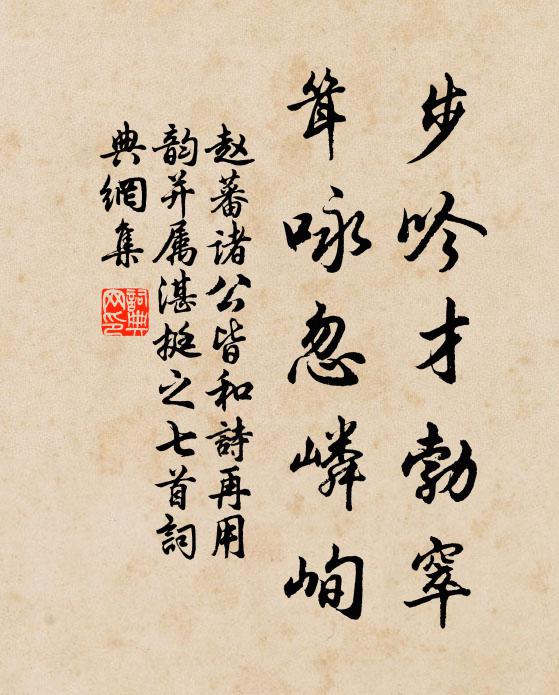 步吟才勃窣
耸咏忽嶙峋
赵蕃诸公皆和詩再用
韵并属湛挺之七首詞
典網集
詞典网印